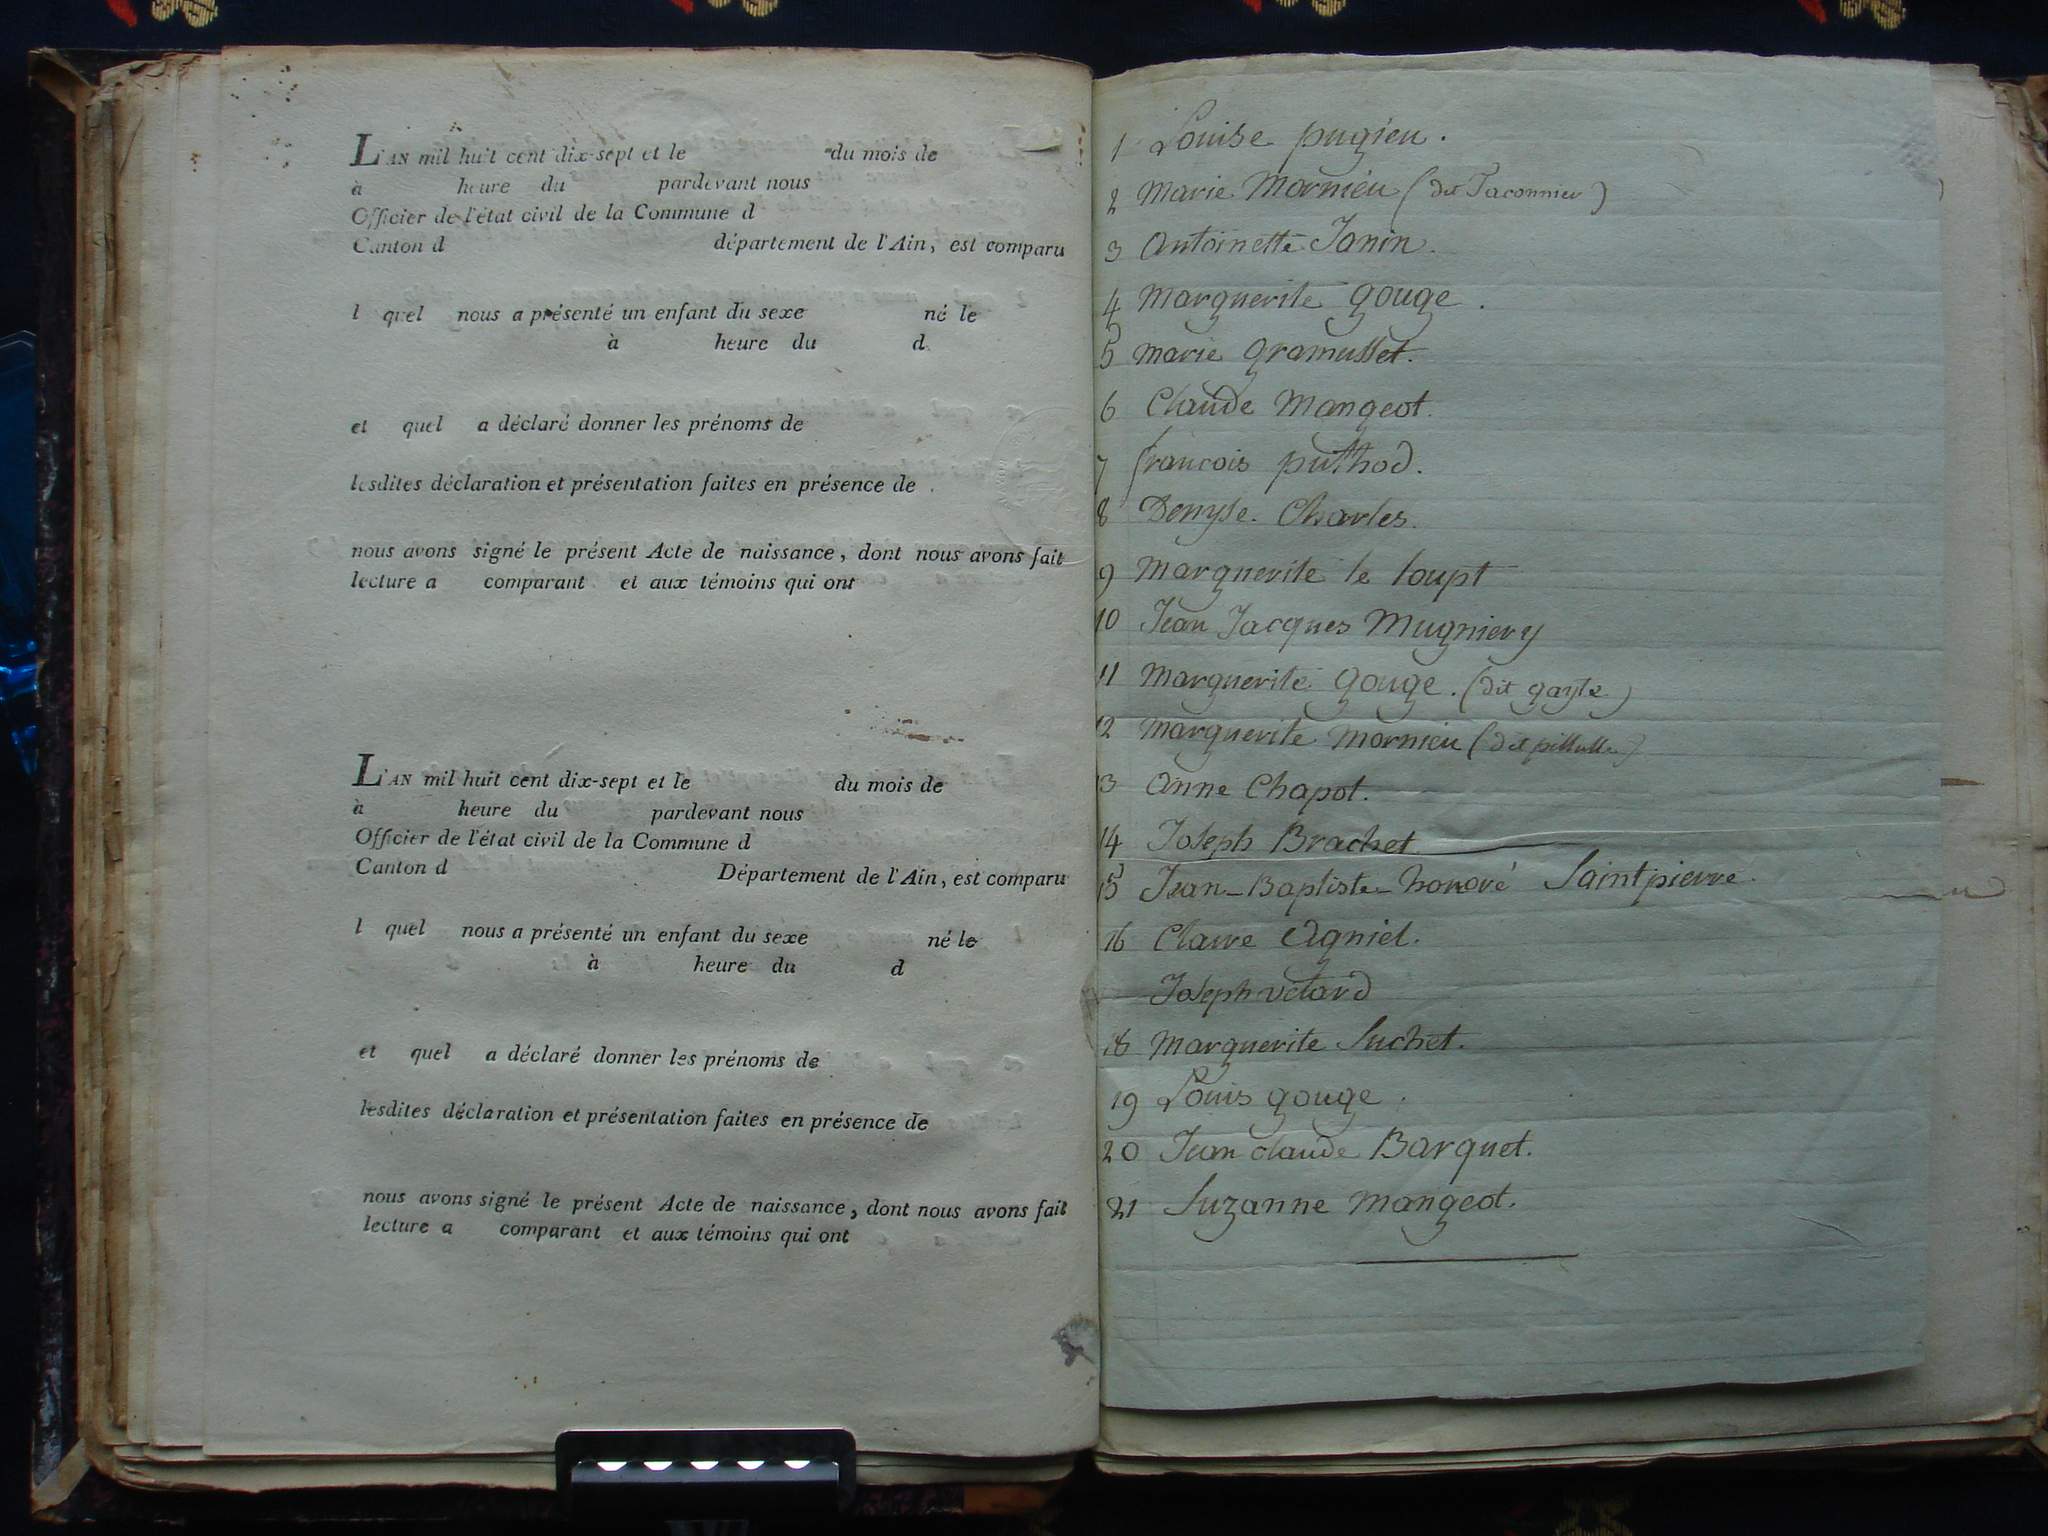 L'AN mil huit cent dix-sept et le du mois de
à heure du pardevant nous
Officier de l'état civil de la Commune d
Canton d département de l'Ain, est comparu
l quel nous a présenté un enfant du sexe né le
à heure du d
et quel a déclaré donner les prénoms de
lesdites déclaration et présentation faites en présence de
nous avons signé le présent Acte de naissance, dont nous avons fait
lecture a comparant et aux témoins qui ont
L'AN mil huit cent dix-sept et le du mois de
à heure du pardevant nous
Officier de l'état civil de la Commune d
Canton d Département de l'Ain, est comparu
l quel nous a présenté un enfant du sexe né le
à heure du d
et quel a déclaré donner les prénoms de
lesdites déclaration et présentation faites en présence de
nous avons signé le présent Acte de naissance, dont nous avons fait
lecture a comparant et aux témoins qui ont
1 Louise pugieu.
2 Marie Mornieu (dit Taconnier)
3 Antoinette Janin.
4 Marguerite gouge.
5 Marie gramusset.
6 Claude Mangeot.
7 francois puthod.
8 Denyse Charles.
9 Marguerite le loupt
10 Jean Jacques Mugniery
11 Marguerite gouge. (dit gayte)
12 Marguerite Mornieu (dit
13 Anne Chapot.
14 Joseph Brachet
15 Jean-Baptiste honoré Saintpierre.
16 Claire Agniel.
Joseph vetard
18 Marguerite Suchet.
19 Louis gouge.
20 Jean claude Barquet.
21 Suzanne Mangeot.